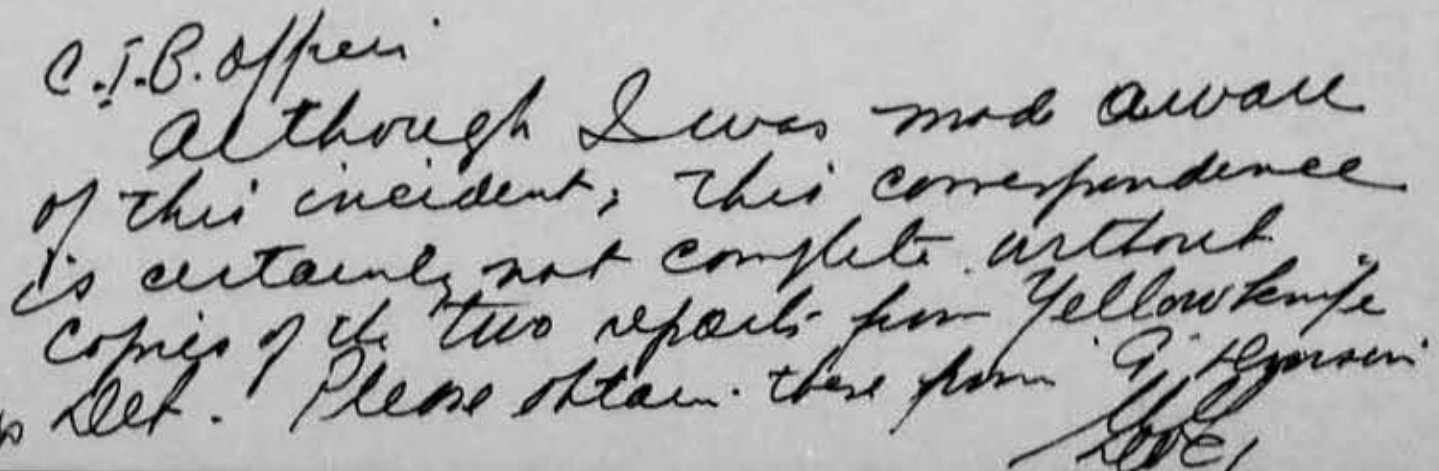 C.I.B. Officer
Although I was made aware
of this incident; this correspondence
is certainly not complete without
copies of the two reports from Yellowknife
Det. Please obtain these from "G" Division